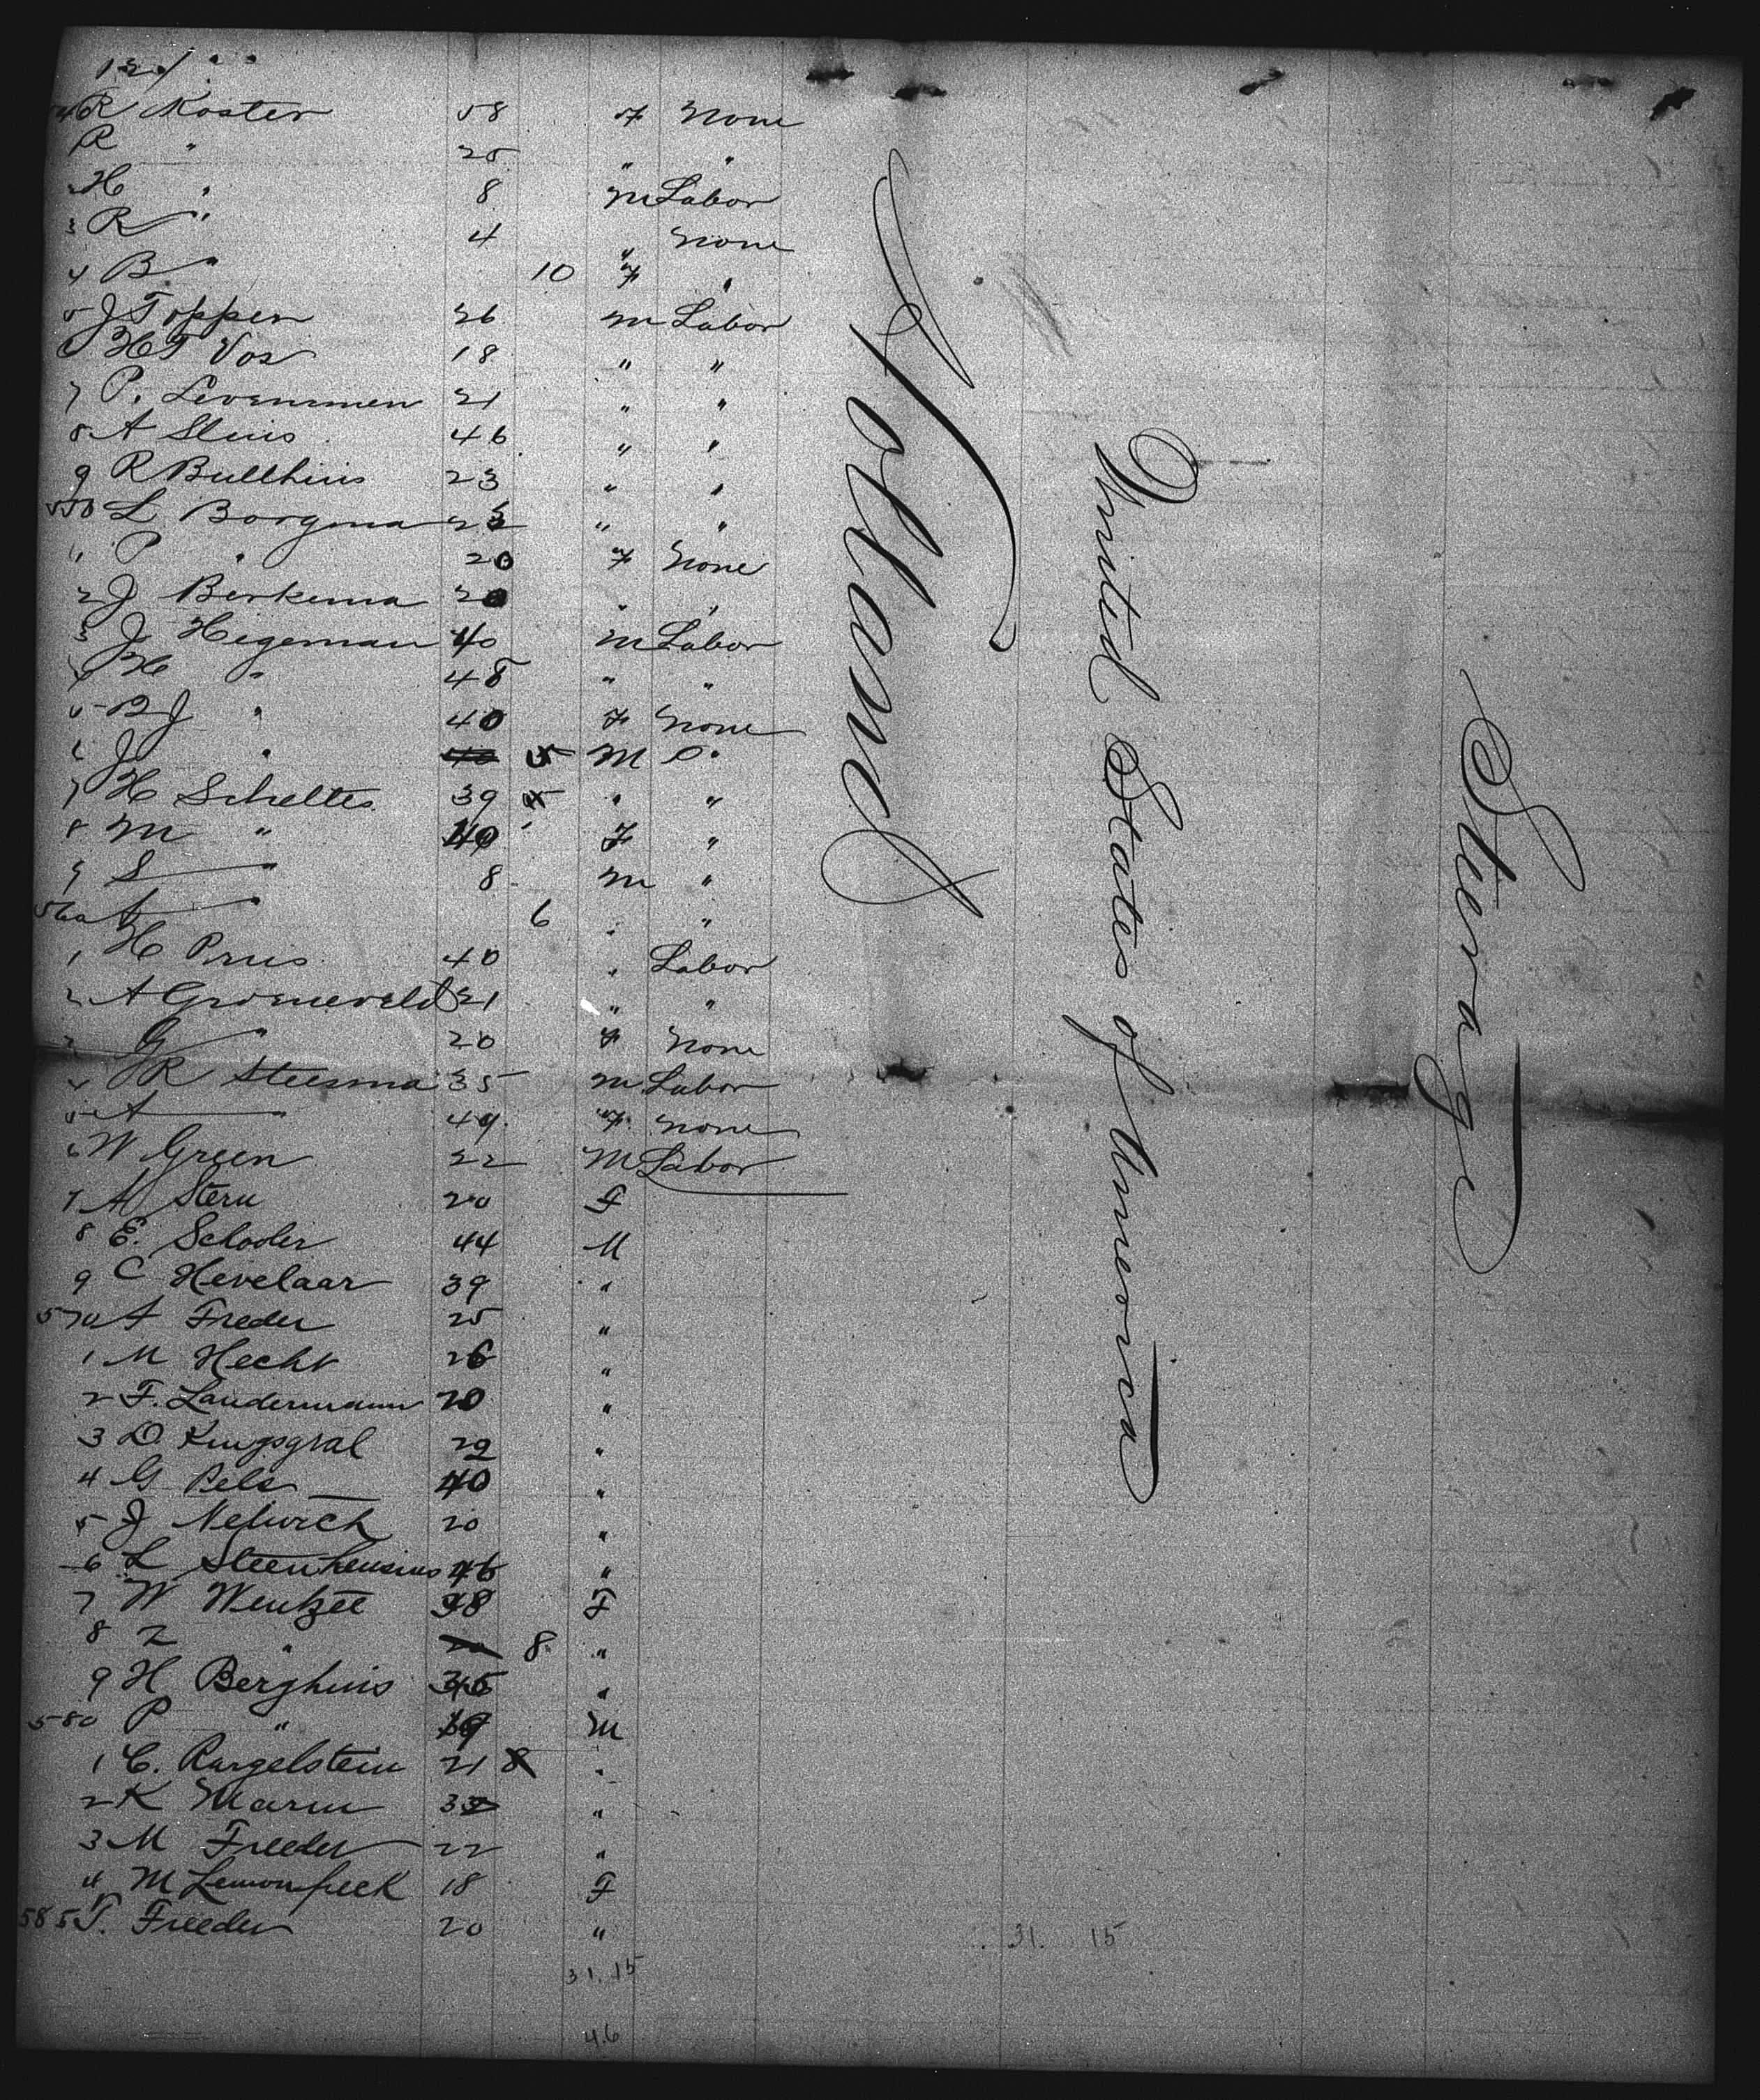 R Koster 58 F None
R " 25 " "
H " 8 M Labor
3 R " 4 " None
4 B " 10 F "
5 J Toppen 26 M Labor
6 H F Vos 18 " "
7 P. Levenmen 21 " "
8 A Sluis 46 " "
9 R Bullhuis 23 " "
550 L Borgma " "
1 P " 20 F None
2 J Berkema 20 " "
3 J Hegeman 40 M Labor
4 H " 48 " "
5 B J " 40 F None
6 J " 5 M "
7 H Scheltes 39 " "
8 M " 40 F "
9 S " 8 M "
560 A " 6 " "
1 H Pruis 40 " Labor
2 A Groeneveld 21 " "
3 G " 20 F None
4 R Steesma 35 M Labor
5 A " 49 F None
6 W Green 22 M Labor
7 A Stern 20 F
8 E. Schooler 44 M
9 C Hevelaar 39 "
570 A Freder 25 "
1 M Hecht 26 "
2 F. Laudermann 20 "
3 D. Kingsgral 29 "
4 G Pels 40 "
5 J Nelwich 20 "
6 L Steenhuisius 46 "
7 W Wentzee 38 F
8 Z " 8 "
9 H Berghuis 35 "
580 P " 39 M
1 C. Rangelstein 21 "
2 K Marm 33 "
3 M Freeder 22 "
4 M Lemonfreek 18 F
585 T. Freeder 20 "
31. 15
46
Holland
United States of America
Steerage
31. 15